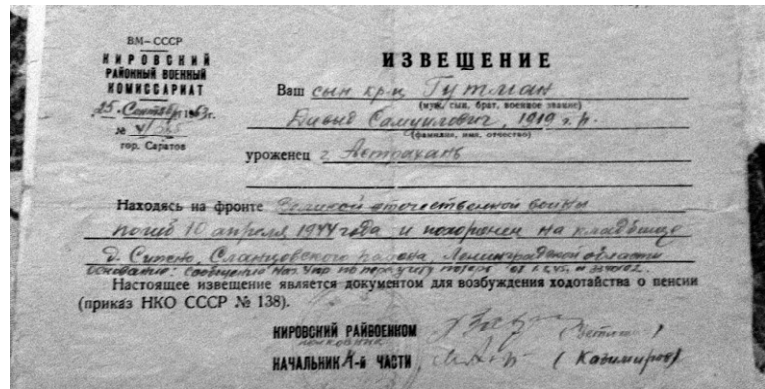 ВМ–СССР
КИРОВСКИЙ
РАЙОННЫЙ ВОЕННЫЙ
КОМИССАРИАТ
25 · Сентября 1963г.
№ V/
гор. Саратов
ИЗВЕЩЕНИЕ
Ваш сын кр-ц Гутман
(муж, сын, брат, военное звание)
Давыд Самуилович, 1919 г. р.
(фамилия, имя, отчество)
уроженец г Астрахань
Находясь на фронте Великой отечественной войны
погиб 10 апреля 1944 года и похоронен на кладбище
д. Ситено, Сланцовского района, Ленинградской области
Основание: сообщение по потерь от
Настоящее извещение является документом для возбуждения ходотайства о пенсии
(приказ НКО СССР № 138).
КИРОВСКИЙ РАЙВОЕНКОМ
полковник
НАЧАЛЬНИК 4-й ЧАСТИ (Казимиров)